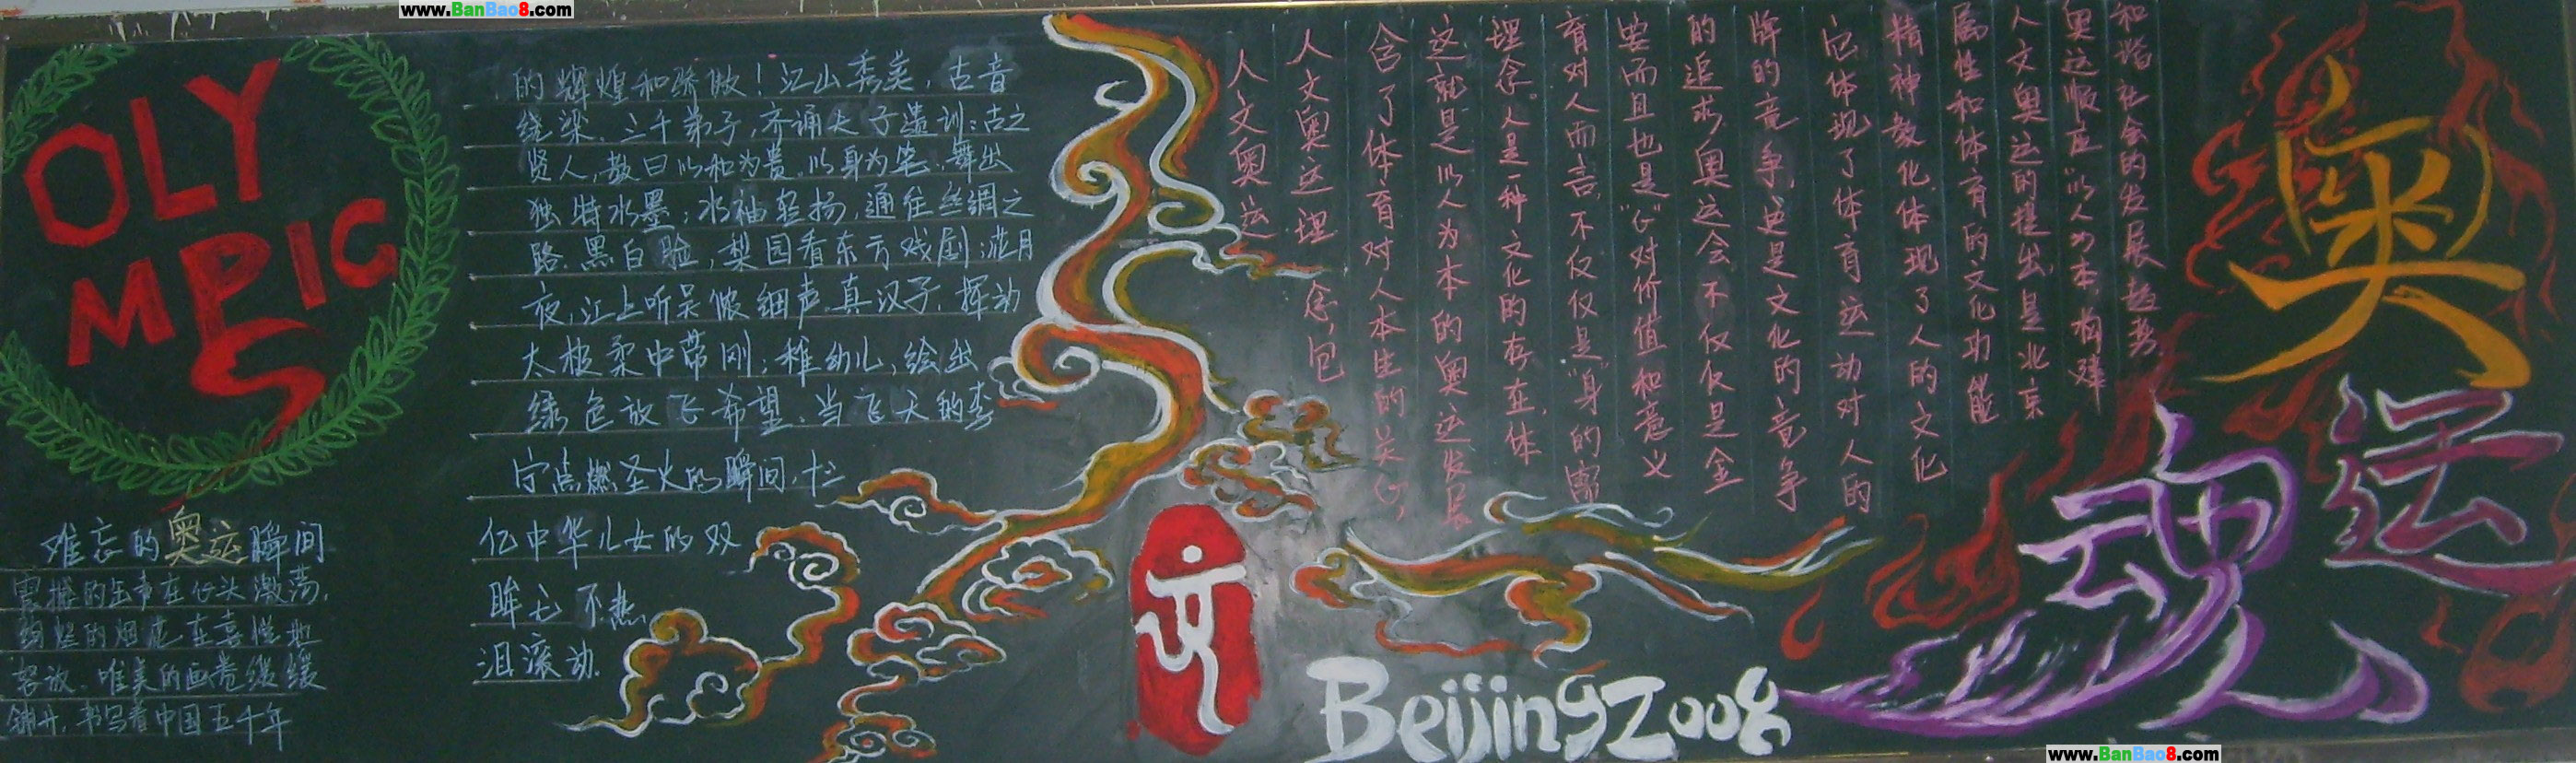 www.BanBao8.com
OLY
MPICS
难忘的奥运瞬间
震撼的缶声在仃头激荡,
绚煌的烟花在喜悦地
怒放。唯美的画卷缓缓
铺开,书写着中国五千年
的辉煌和骄傲!江山秀美,古音
绕梁。三千弟子,齐诵夫子遗训:古之
贤人,教曰以和为贵。以身为笔,舞出
独特水墨;水袖轻扬,通往丝绸之
路。黑白脸,梨园看东方戏剧;花月
夜,江上听吴侬细声。真汉子,挥动
太极柔中带刚;稚幼儿,绘出
绿色放飞希望。当飞天的李
宁点燃圣火的瞬间,十三
亿中华儿女的双
眸无不热
泪滚动.
人文奥运
人文奥运理念,包
含了体育对人本生的关心,
这就是以人为本的奥运发展
理念。人是一种文化的存在,体
育对人而言,不仅仅是"身"的需
要而且也是"心"对价值和意义
的追求,奥运会不仅仅是金
牌的竞争,更是文化的竞争
它体现了体育运动对人的
精神教化,体现了人的文化
属性和体育的文化功能
人文奥运的提出,是北京
奥运顺应"以人为本,构建
和谐社会的发展趋势
京
Beijing2008
奥
运
魂
www.BanBao8.com